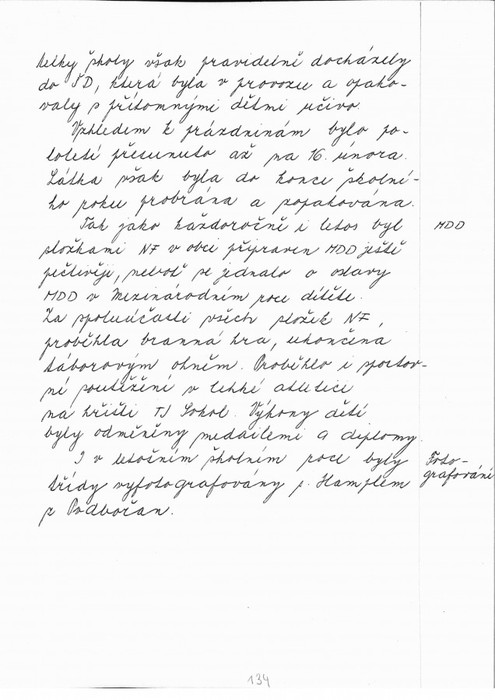 telky školy však pravidelně docházely
do ŠD, která byla v provozu a opako-
valy s přítomnými dětmi učivo.
Vzhledem k prázdninám bylo po-
loletí přesunuto až na 16. února.
Látka však byla do konce školní-
ho roku probrána a zopakována.
Tak jako každoročně i letos byl MDD
složkami NF v obci připraven MDD ještě
pečlivěji, neboť se jednalo o oslavy
MDD v Mezinárodním roce dítěte.
Za spoluúčasti všech složek NF,
proběhla branná hra, ukončena
táborovým ohněm. Proběhlo i sportov-
ní soutěžení v lehké atletice
na hřišti TJ Sokol. Výkony dětí
byly odměněny medailemi a diplomy.
I v letočním školním roce byly Foto-
třídy vyfotografovány p. Hamplem grafování
z Podbořan.
134